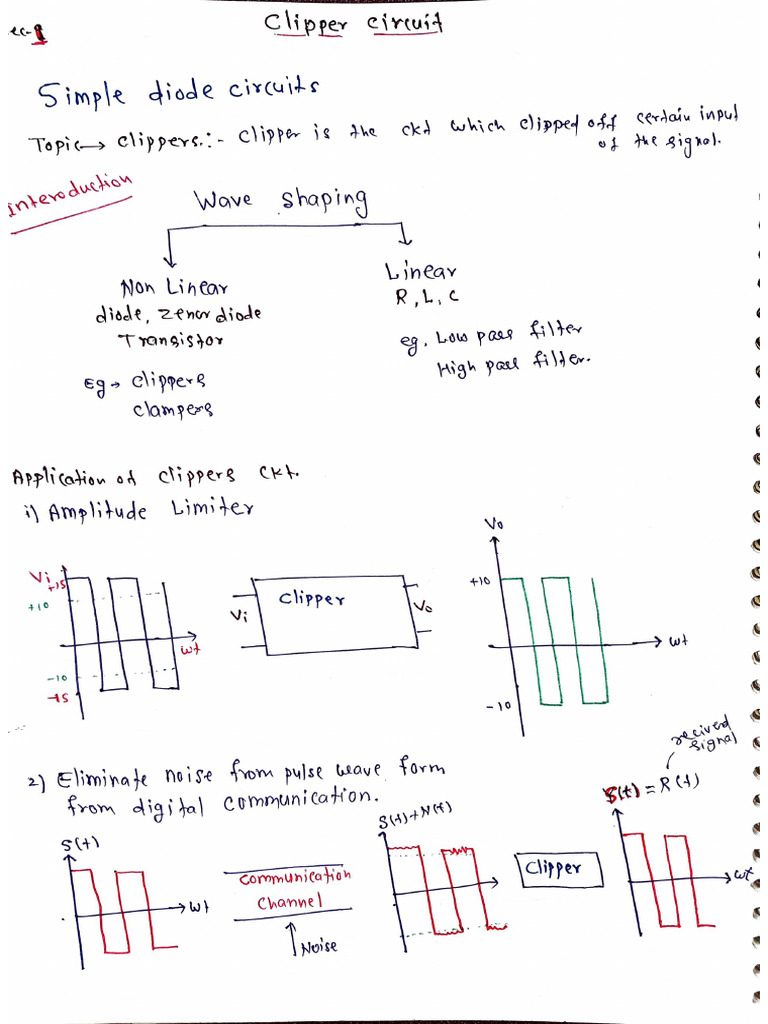 Lec-1
Clipper circuit
Simple diode circuits
Topic → clippers:- clipper is the ckt which clipped off certain input
of the signal.
Interoduction
Wave shaping
Non Linear
diode, zenor diode
Transistor
Eg → clippers
clampers
Linear
R, L, C
eg. Low pass filter
High pass filter.
Application of clippers ckt.
i) Amplitude Limiter
Vi
+15
+10
-10
-15
wt
Vi
clipper
Vo
Vo
+10
-10
wt
2) Eliminate noise from pulse wave form
from digital communication.
S(t)
wt
communication
channel
Noise
S(t)+N(t)
Clipper
recived
signal
S(t) = R(t)
wt